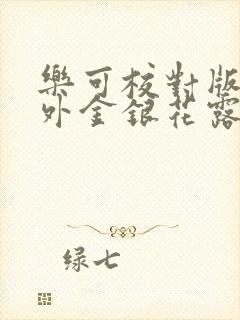 樂可校對版
外金銀花露
绿七